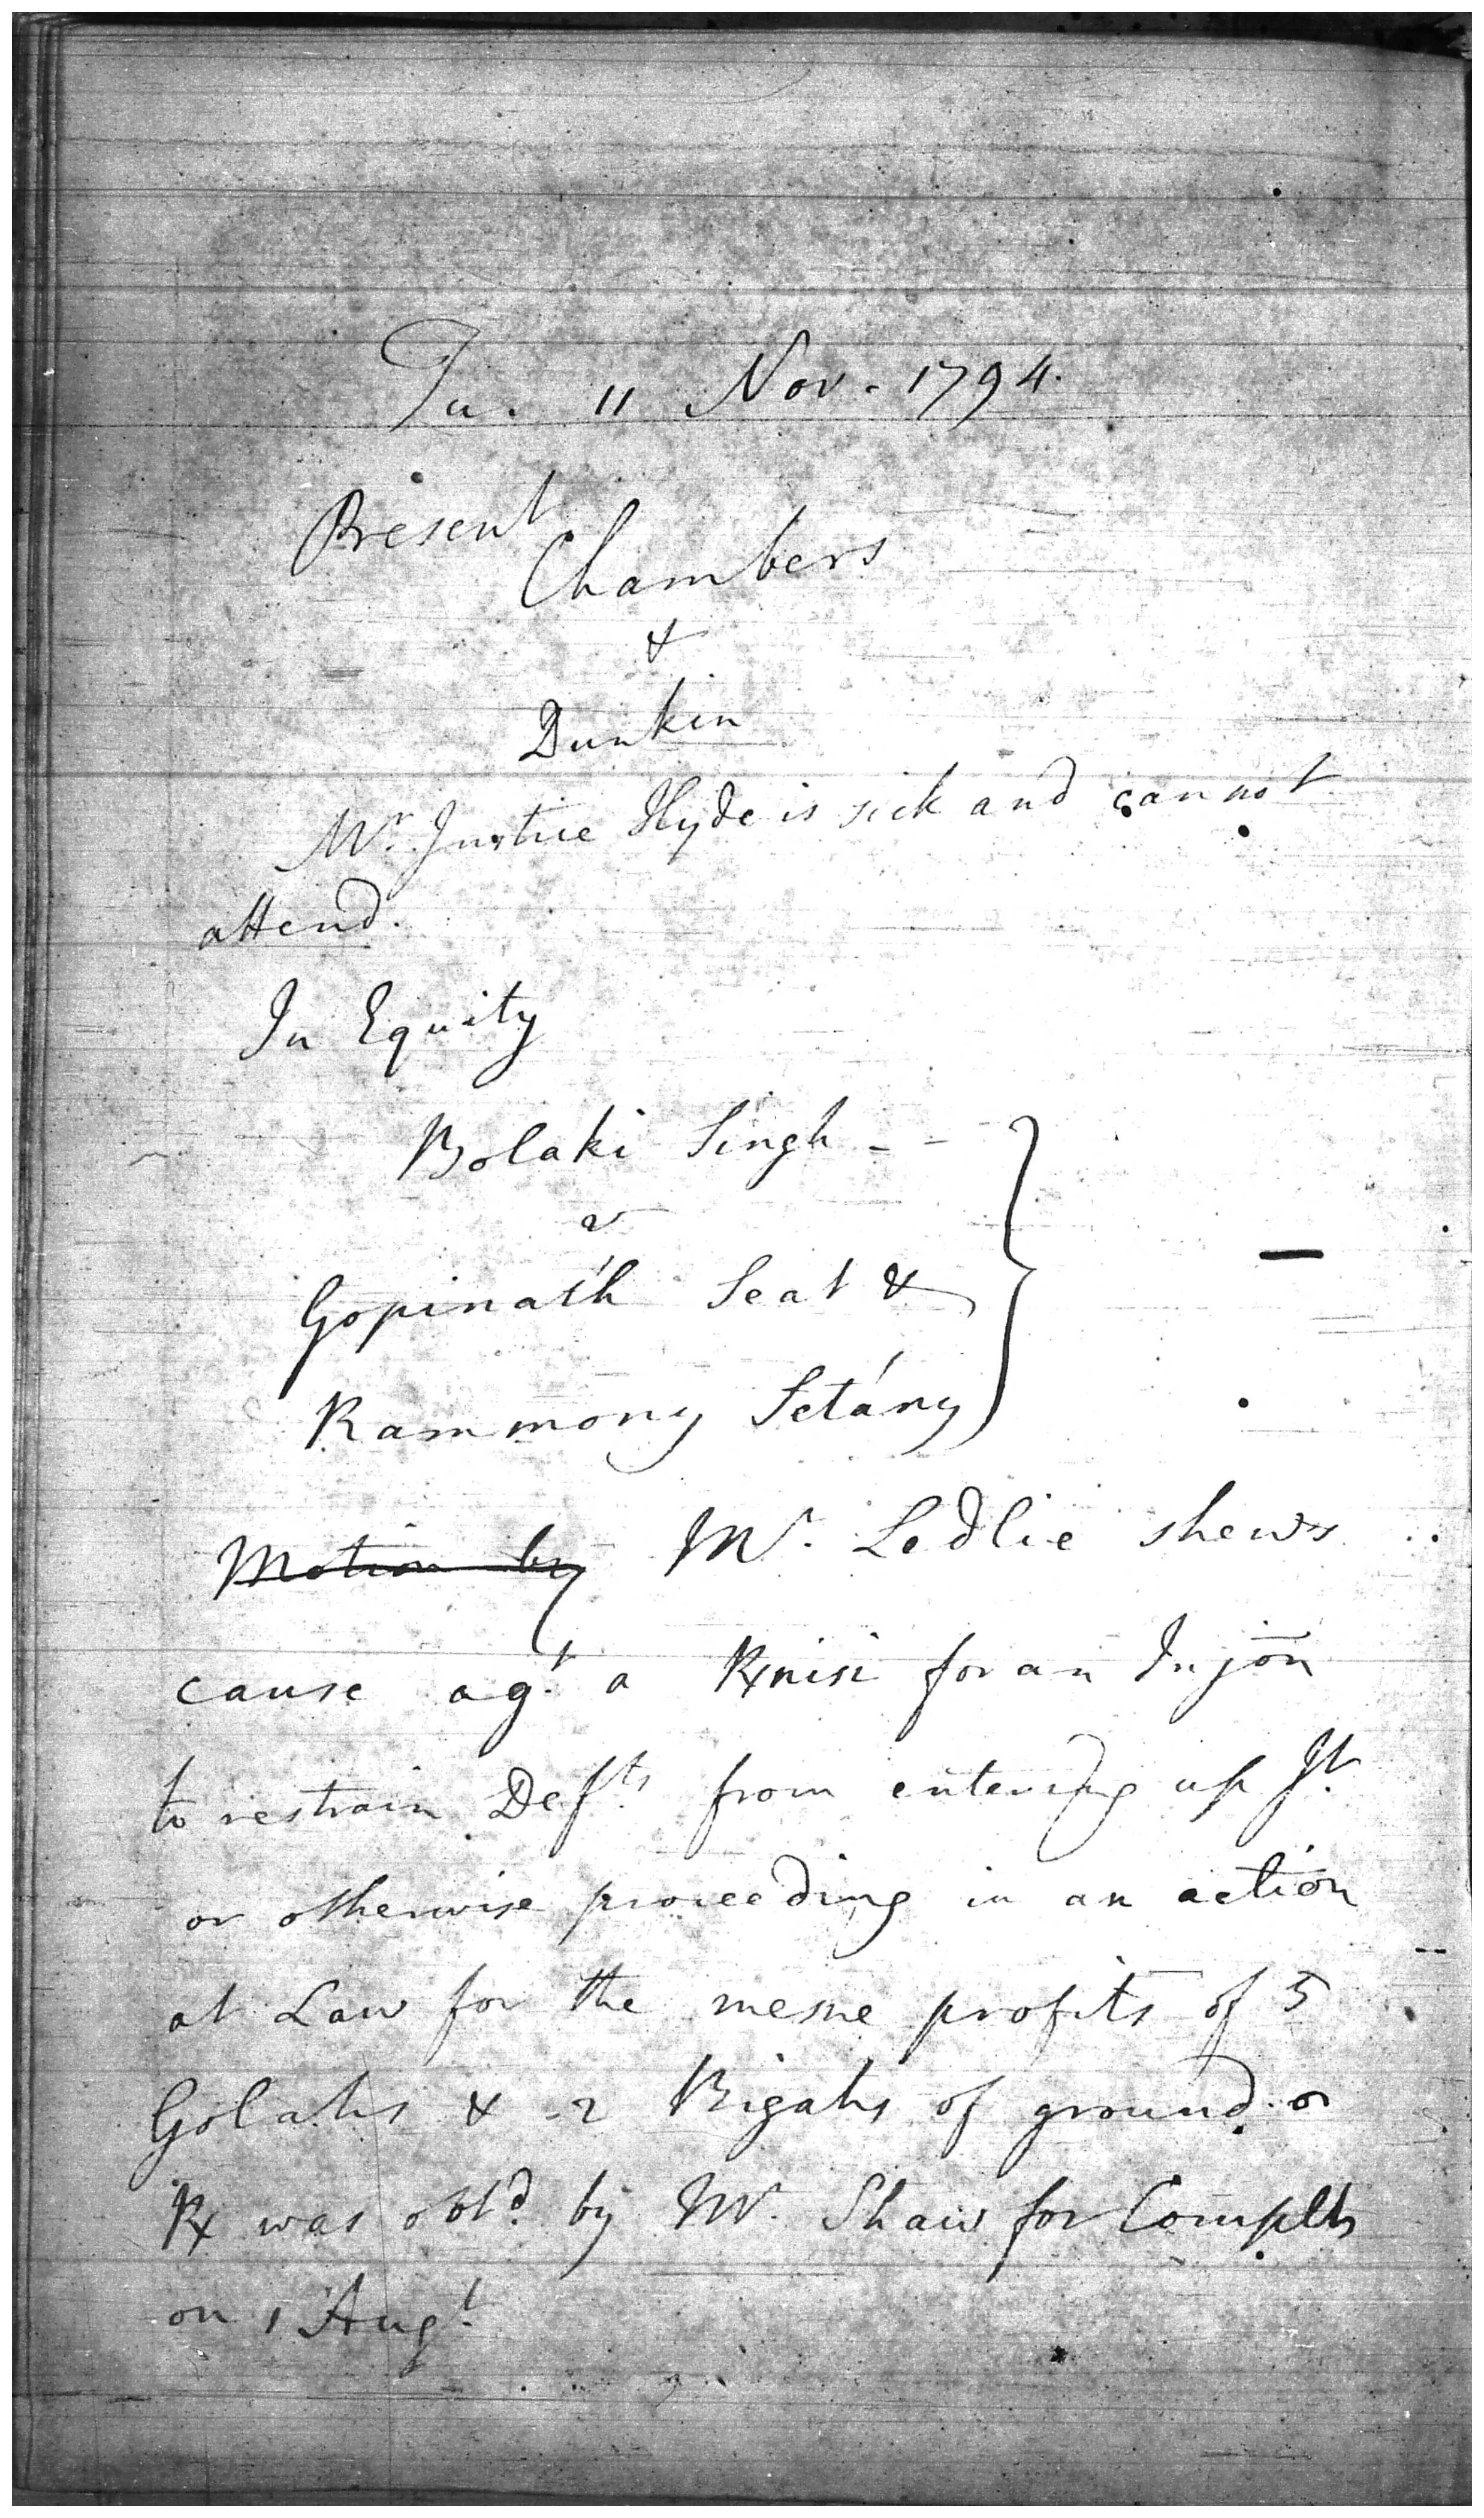 Tu. 11 Nov. 1794.
Present
Chambers
&
Dunkin
Mr. Justice Hyde is sick and cannot
attend.
In Equity
Bolaki Singh - -
v
Gopináth Seat &
Rammony Setány
Motion by Mr. Ledlie shews
cause agt. a Rx nisi for an Injōn
to restrain Defts. from entering up Jt.
or otherwise proceeding in an action
at Law for the mesne profits of 5
Golahs & 2 Bigahs of ground.
Rx was obtd. by Mr. Shaw for Complts
on 1 Augt.